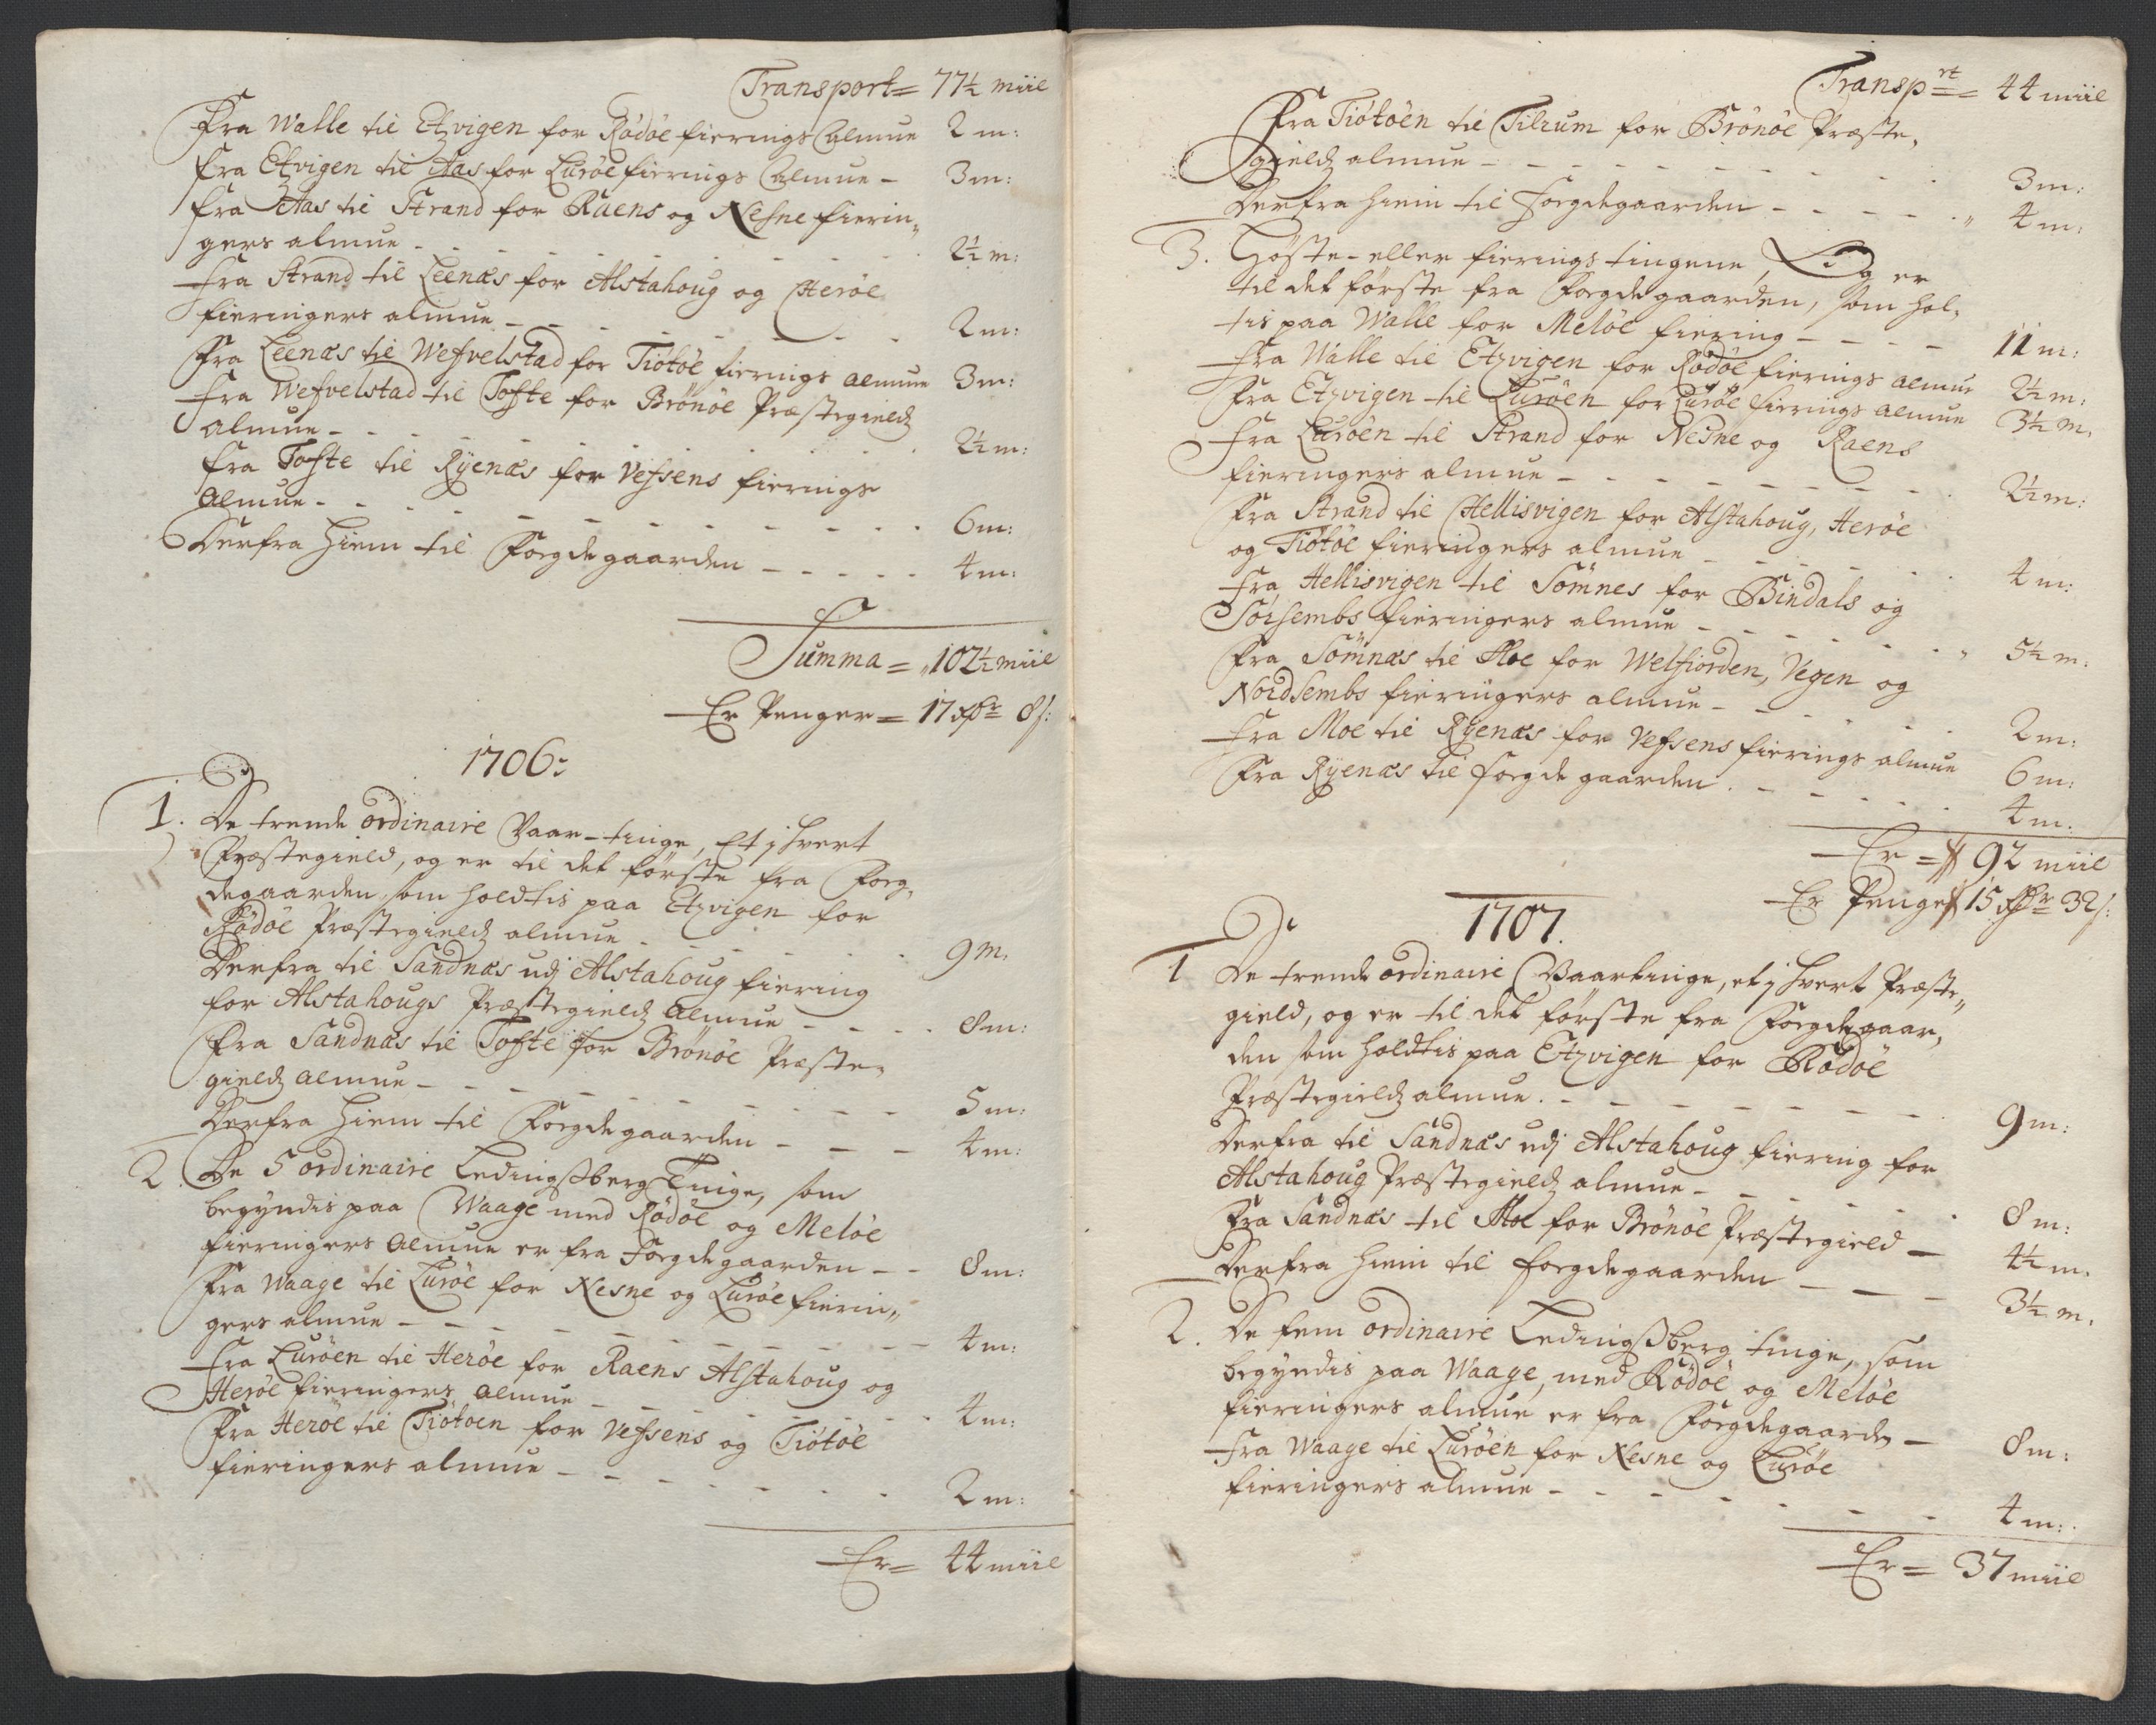 Transport = 77½ miil
Fra Walle til Etzvigen for Rödöe fierings Almue 2 m:
fra Etzvigen til Aas for Luröe fierings Almue - 3 m:
fra Aas til Strand for Raens og Nesne fierin-
gers almue - - - - - 2½ m:
fra Strand til Leenæs for Alstahoug og Heröe
fieringers almue - - - - 2 m:
Fra Leenæs til Wefvelstad for Tiötöe fierings almue 3 m:
fra Wefvelstad til Tofte for Brönöe Præstegieldz
almue - - - - - 2½ m:
fra Tofte til Ryenæs for Vefsens fierings
Almue - - - - - 6 m:
Derfra hiem til Forgdegaarden - - - - - 4 m:
Summa = 102½ miil
Er Penger = 17 Rdr 8 s:
1706:
1. De trende ordinaire Vaar-tinge, Et j hvert
Præstegield, og er til det förste fra Forg-
degaarden som holdtis paa Etzvigen for
Rödöe Præstegieldz almue - - - - 9 m.
Derfra til Sandnæs udj Alstahoug fiering
for Alstahougs Præstegieldz Almue - - - - 8 m:
Fra Sandnæs til Tofte for Brönöe Præste-
gieldz Almue - - - - - 5 m:
Derfra hiem til Forgdegaarden - - - 4 m:
2. De 5 ordinaire Ledingsberg Tinge, som
begyndis paa Waage med Rödöe og Melöe
fieringers Almue er fra Forgdegaarden - - 8 m:
Fra Waage til Luröe for Nesne og Luröe fierin-
gers almue - - - - - 4 m:
fra Luröen til Heröe for Raens Alstahoug og
Heröe fieringers almue - - - - 4 m:
Fra Heröe til Tiötöen for Vefsens og Tiötöe
fieringers almue - - - - 2 m:
Er = 44 miil
Transp:rt = 44 miil
Fra Tiötöen til Tilrum for Brönöe Præste-
gieldz almue - - - - - 3 m:
Derfra hiem til Forgdegaarden - - - - 4 m:
3. Höste- eller fierings tingene, Og er
til det förste fra Forgdegaarden, som hol-
tis paa Walle for Melöe fiering - - - - 11 m:
Fra Walle til Etzvigen for Rödöe fierings almue 2½ m:
Fra Etzvigen til Luröen for Luröe fierings almue 3½ m.
Fra Luröen til Strand for Nesne og Raens
fieringers almue - - - - - 2½ m:
Fra Strand til Hellisvigen for Alstahoug, Heröe
og Tiötöe fieringers almue - - - - 4 m:
Fra Hellisvigen til Sömnes for Bindals og
Sörsembs fieringers almue - - - - 5½ m:
Fra Sömnæs til Moe for Welfiorden, Vegen og
Nordsembs fieringers almue - - - - 2 m:
Fra Moe til Ryenæs for Vefsens fierings almue 6 m:
Fra Ryenæs til forgdegaarden - - - - 4 m:
Er = 92 miil
Er Penge 15 Rdr 32 s:
1707.
1 De trende ordinaire Vaartinge, et j hvert Præste-
gield, og er til det förste fra Forgdegaar-
den som holdtis paa Etzvigen for Rödöe
Præstegieldz almue - - - - - 9 m:
Derfra til Sandnæs udj Alstahoug fiering for
Alstahoug Præstegieldz almue - - - - 8 m:
Fra Sandnæs til Moe for Brönöe Præstegield - 4½ m.
Derfra hiem til forgdegaarden - - - 3½ m.
2. De fem ordinaire Ledingsberg tinge, som
begyndis paa Waage, med Rödöe og Melöe
fieringers almue er fra Forgdegaarden - 8 m:
fra Waage til Luröen for Nesne og Luröe
fieringers almue - - - - - 4 m:
Er = 37 miil